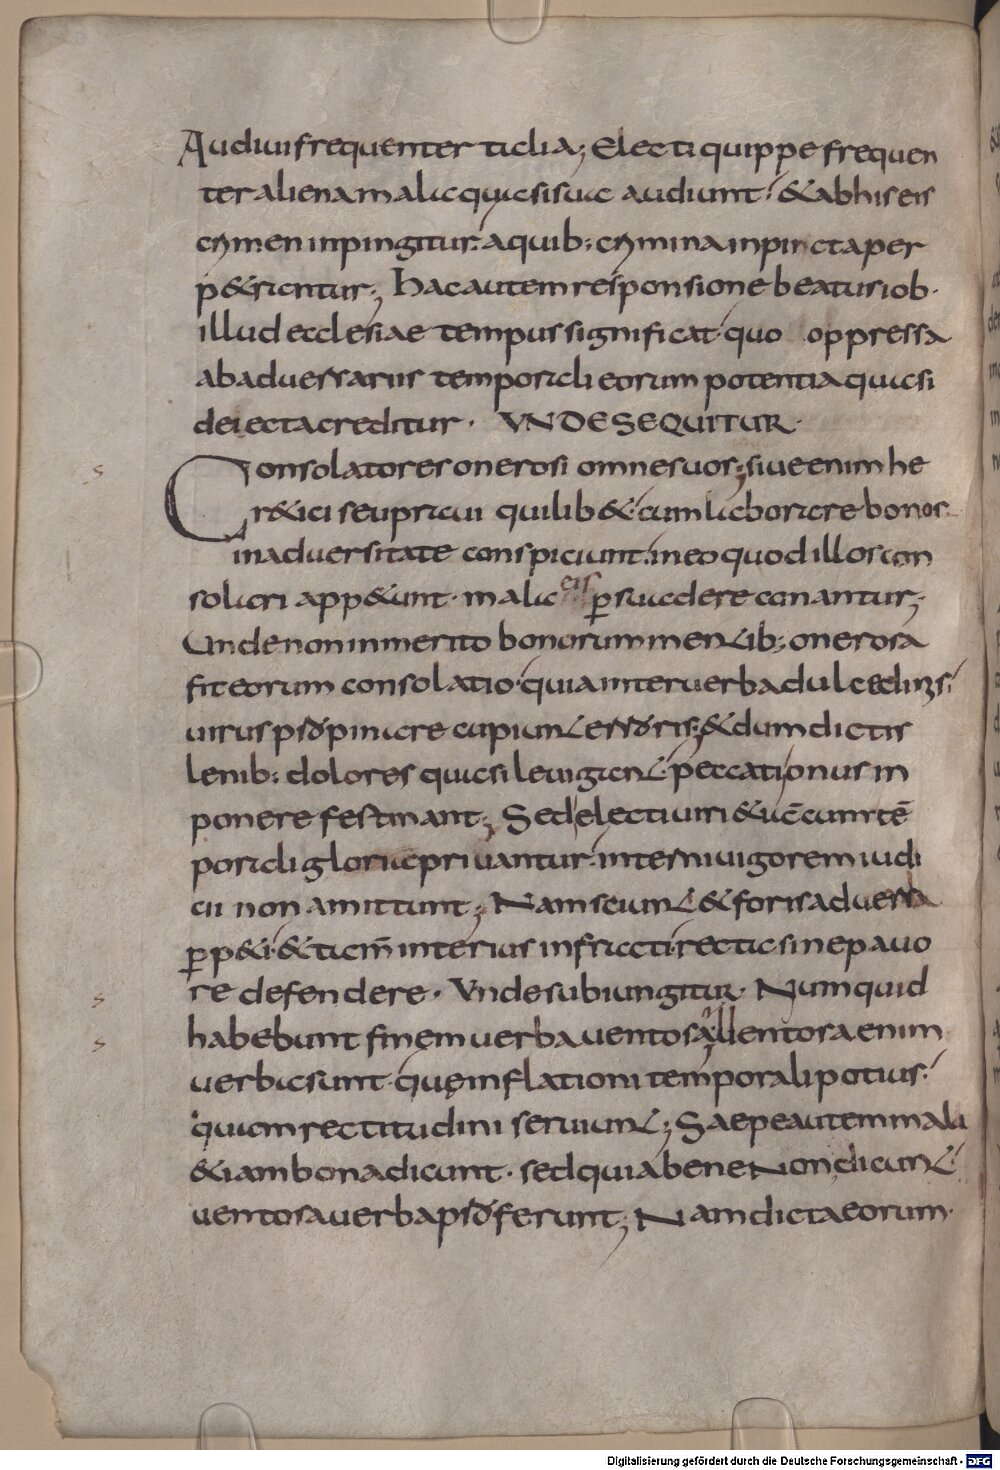 Audiui frequenter talia; Electi quippe frequen
ter aliena mala quasi sua audiunt· & ab his eis
crimen inpingitur· a quib; crimina inpincta per
p&rantur; hac autem responsione beatus iob·
illud ecclesiae tempus significat· quo oppressa
ab aduersariis temporali eorum potentia quasi
deiecta creditur· UNDE SEQUITUR·
Consolatores onerosi omnes uos; siue enim he
r&ici seu praui quilib& cum laborare bonos
in aduersitate conspiciunt· in eo quod illos con
solari app&unt· mala eis ꝑsuadere conantur;
Unde non inmerito bonorum mentib; onerosa
fit eorum consolatio· quia inter uerba dulcedinis
uirus propinare cupiunt erroris; & dum dictis
lenib; dolores quasi leuigant· peccati onus in
ponere festinant; Sed electi uiri & uc̄ cum tē
porali gloria priuantur· interni uigorem iudi
cii non amittunt; Nam sciunt & foris aduersa
ꝑp&i· & tam̄ interius infracti recta sine pauo
re defendere· Unde subiungitur· Numquid
habebunt finem uerba uentosa; Uentosa enim
uerba sunt· quę inflationi temporali potius·
quam rectitudini seruiunt; Saepe autem mali
& iam bona dicunt· sed quia bene Non dicunt
uentosa uerba proferunt; Nam dicta eorum·
Digitalisierung gefördert durch die Deutsche Forschungsgemeinschaft - DFG